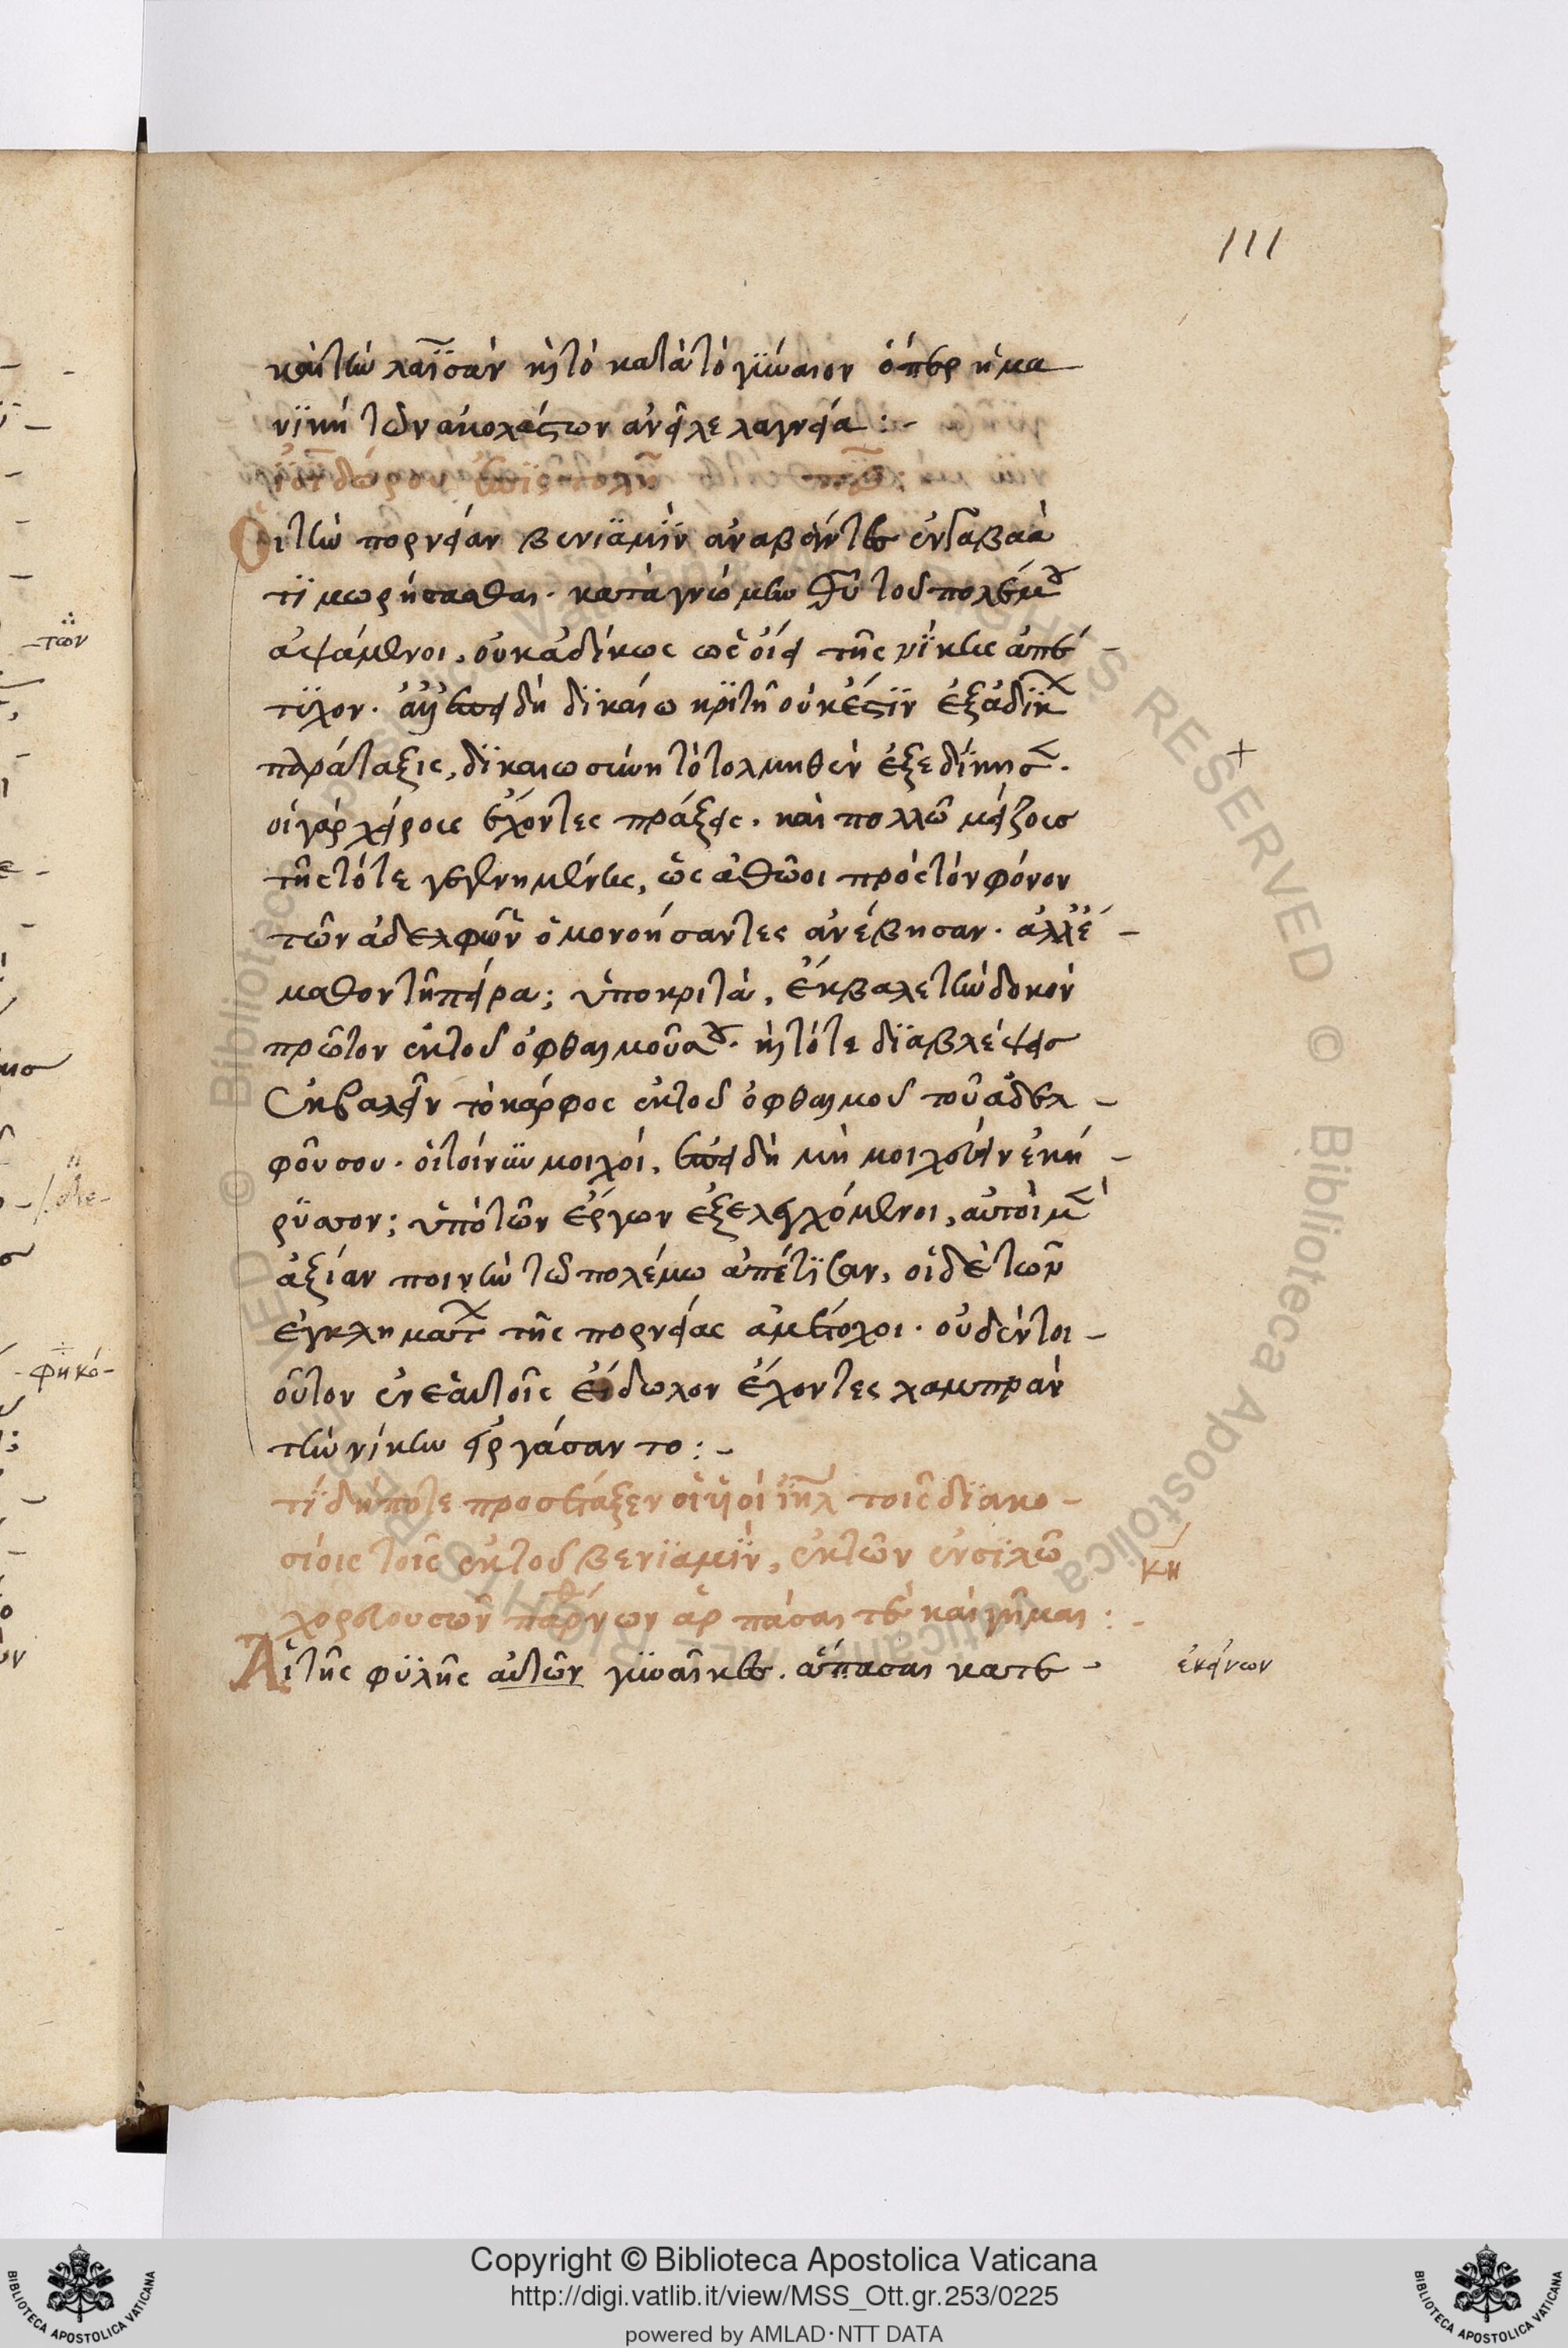 111
καὶ τὴν λαΐσαν καὶ τὸ κατὰ τὸ γύναιον ὅπερ ἡ μα
νϊκὴ τῶν ἀκολάστων ἀνεῖλε λαγνεία :-
ἰσιδώρου
Οἱ τὴν πορνείαν βενϊαμὶν ἀναβάντες ἐν γαβαὰ
τϊμωρήσασθαι. κατὰ γνώμην θυ τοῦ πολέμου
ἁψάμενοι, οὐκ ἀδίκως ὡς οἴει τῆς νίκης ἀπέ -
τϋχον. ἀλλ' ἐπειδὴ δϊκαίω κρϊτῆ οὐκ ἔστϊν ἐξ ἀδϊκ
παράταξις, δϊκαιωσύνη τὸ τολμηθὲν ἐξεδίκησ.
οἱ γὰρ χείρους ἔχοντες πράξεις. καὶ πολλῶ μείζους
τῆς τότε γεγενημένης, ὡς ἀθῶοι πρὸς τὸν φόνον
τῶν ἀδελφῶν ὁμονοήσαντες ἀνέβησαν. ἀλλ' ἔ -
μαθον τῆ πείρα; ὑποκριτὰ, ἔκβαλε τὴν δοκὸν
πρῶτον ἐκ τοῦ ὀφθαλμοῦ σου. καὶ τότε δϊαβλέψεις
ἐκβαλεῖν τὸ κάρφος ἐκ τοῦ ὀφθαλμοῦ τοῦ ἀδελ -
φοῦ σου. οἱ τοίνϋν μοιχοί, ἐπειδὴ μὴ μοιχεύειν ἐκή -
ρϋττον; ὑπὸ τῶν ἔργων ἐξελεγχόμενοι, αὐτοὶ μὲν
ἀξίαν ποινὴν τῶ πολέμω ἀπέτϊσαν, οἱ δὲ τῶν
ἐγκλημάτ τῆς πορνείας ἀμέτοχοι. οὐδὲν τοι -
οῦτον ἐν ἑαυτοῖς εἴδωλον ἔχοντες λαμπρὰν
τὴν νίκην εἰργάσαντο :-
τί δήποτε προσέταξεν οἱ υἱοὶ ἰηλ τοῖς δϊακο -
σίοις τοῖς ἐκ τοῦ βενϊαμὶν, ἐκ τῶν ἐν σϊλὼ
χορευουσῶν παρθένων ἁρπάσαι τε καὶ γῆμαι :-
κη
Αἱ τῆς φϋλῆς αὐτῶν γϋναῖκες. ἅπασαι κατε -
ἐκείνων
+
των
φηκό-
Copyright © Biblioteca Apostolica Vaticana
http://digi.vatlib.it/view/MSS_Ott.gr.253/0225
powered by AMLAD·NTT DATA
BIBLIOTECA APOSTOLICA VATICANA
BIBLIOTECA APOSTOLICA VATICANA